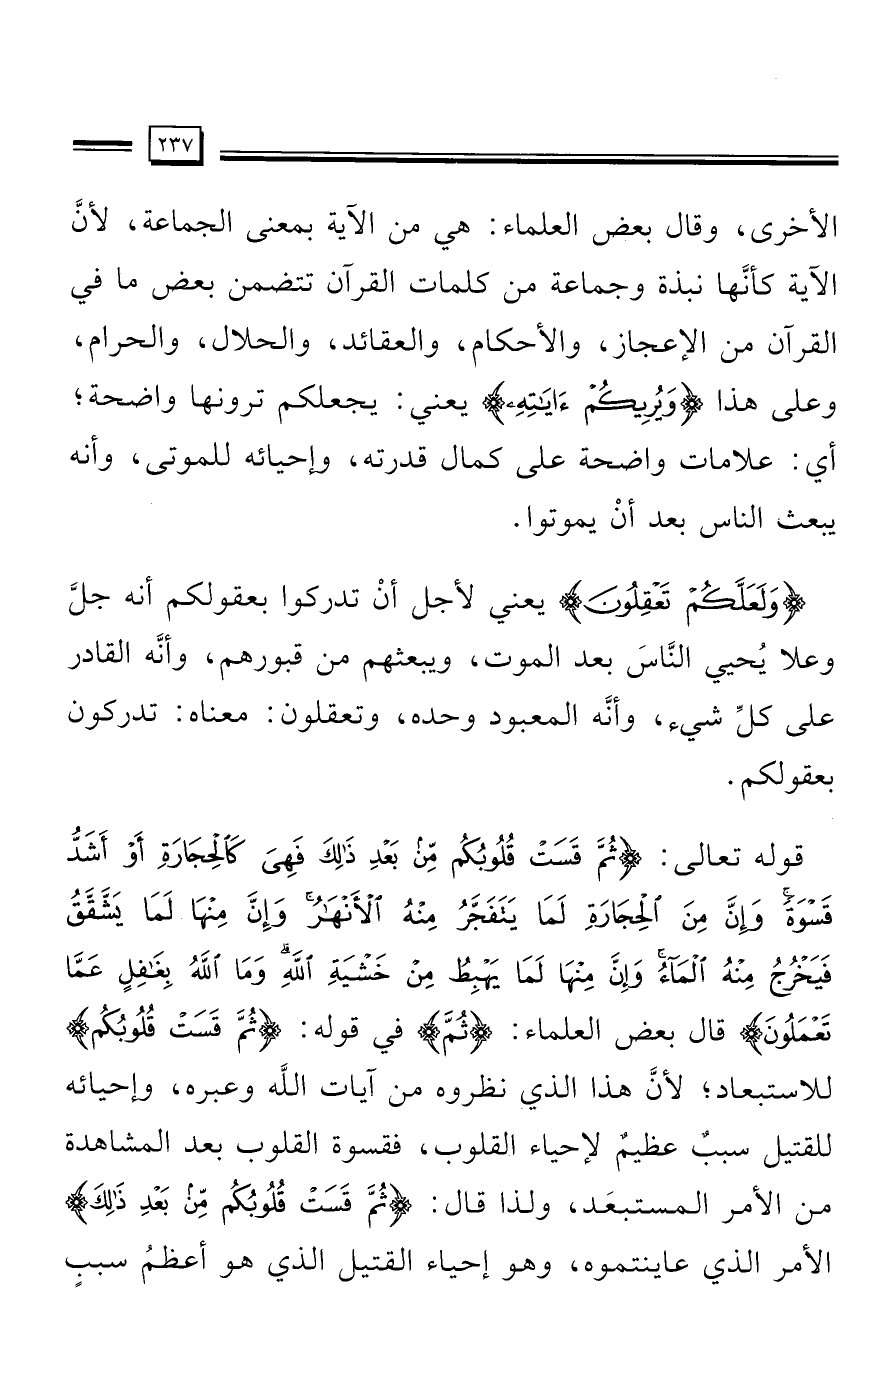 ٢٣٧
الأخرى، وقال بعض العلماء: هي من الآية بمعنى الجماعة، لأنَّ
الآية كأنَّها نبذة وجماعة من كلمات القرآن تتضمن بعض ما في
القرآن من الإعجاز، والأحكام، والعقائد، والحلال، والحرام،
وعلى هذا ﴿وَيُرِيكُمْ ءَايَٰتِهِۦ﴾ يعني: يجعلكم ترونها واضحة؛
أي: علامات واضحة على كمال قدرته، وإحيائه للموتى، وأنه
يبعث الناس بعد أنْ يموتوا.
﴿وَلَعَلَّكُمْ تَعْقِلُونَ﴾ يعني لأجل أنْ تدركوا بعقولكم أنه جلَّ
وعلا يُحيي النَّاسَ بعد الموت، ويبعثهم من قبورهم، وأنَّه القادر
على كلِّ شيء، وأنَّه المعبود وحده، وتعقلون: معناه: تدركون
بعقولكم.
قوله تعالى: ﴿ثُمَّ قَسَتْ قُلُوبُكُم مِّنۢ بَعْدِ ذَٰلِكَ فَهِىَ كَٱلْحِجَارَةِ أَوْ أَشَدُّ
قَسْوَةً ۚ وَإِنَّ مِنَ ٱلْحِجَارَةِ لَمَا يَتَفَجَّرُ مِنْهُ ٱلْأَنْهَٰرُ ۚ وَإِنَّ مِنْهَا لَمَا يَشَّقَّقُ
فَيَخْرُجُ مِنْهُ ٱلْمَآءُ ۚ وَإِنَّ مِنْهَا لَمَا يَهْبِطُ مِنْ خَشْيَةِ ٱللَّهِ ۗ وَمَا ٱللَّهُ بِغَٰفِلٍ عَمَّا
تَعْمَلُونَ﴾ قال بعض العلماء: ﴿ثُمَّ﴾ في قوله: ﴿ثُمَّ قَسَتْ قُلُوبُكُم﴾
للاستبعاد؛ لأنَّ هذا الذي نظروه من آيات اللَّه وعبره، وإحيائه
للقتيل سببٌ عظيمٌ لإحياء القلوب، فقسوة القلوب بعد المشاهدة
من الأمر المستبعَد، ولذا قال: ﴿ثُمَّ قَسَتْ قُلُوبُكُم مِّنۢ بَعْدِ ذَٰلِكَ﴾
الأمر الذي عاينتموه، وهو إحياء القتيل الذي هو أعظمُ سببٍ